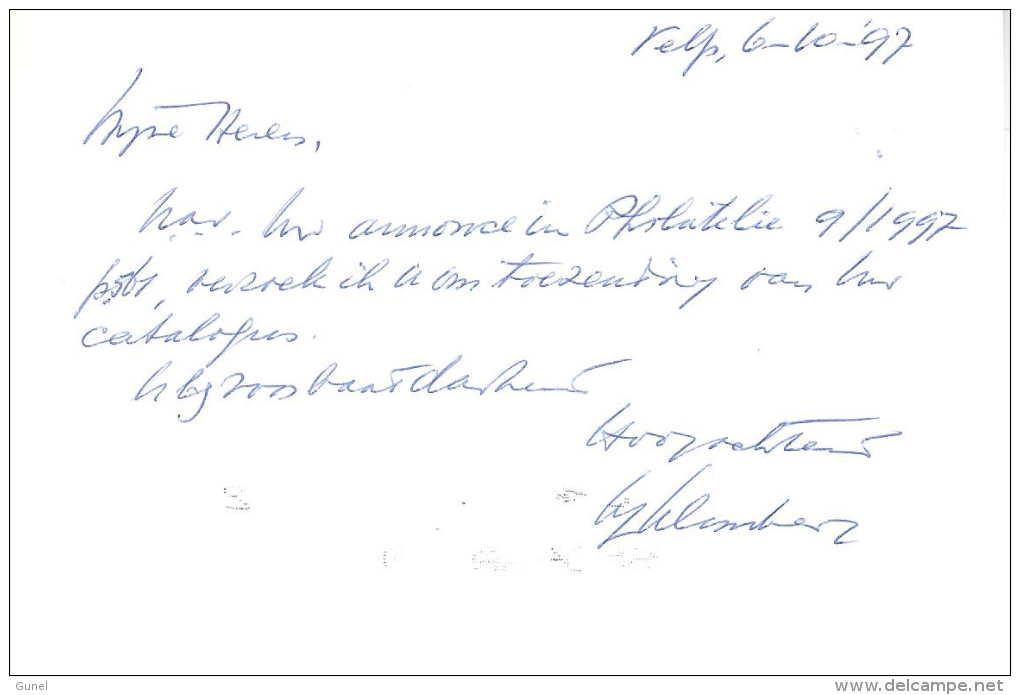 Velp, 6-10-'97
Mijne Heren,
n.a.v. Uw annonce in Philatelie 9/1997
verzoek ik u om toezending van Uw
catalogus.
U bij voorbaat dankend
Hoogachtend
Gunel
www.delcampe.net